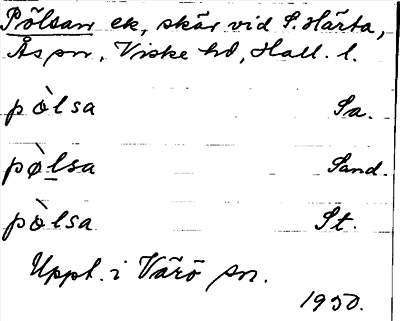 Pölsan ek, skär vid S. Härta,
Ås sn, Viske hd, Hall. l.
pòlsa Sa.
pø̀lsa Sand.
pòlsa St.
Uppt. i Värö sn.
1950.